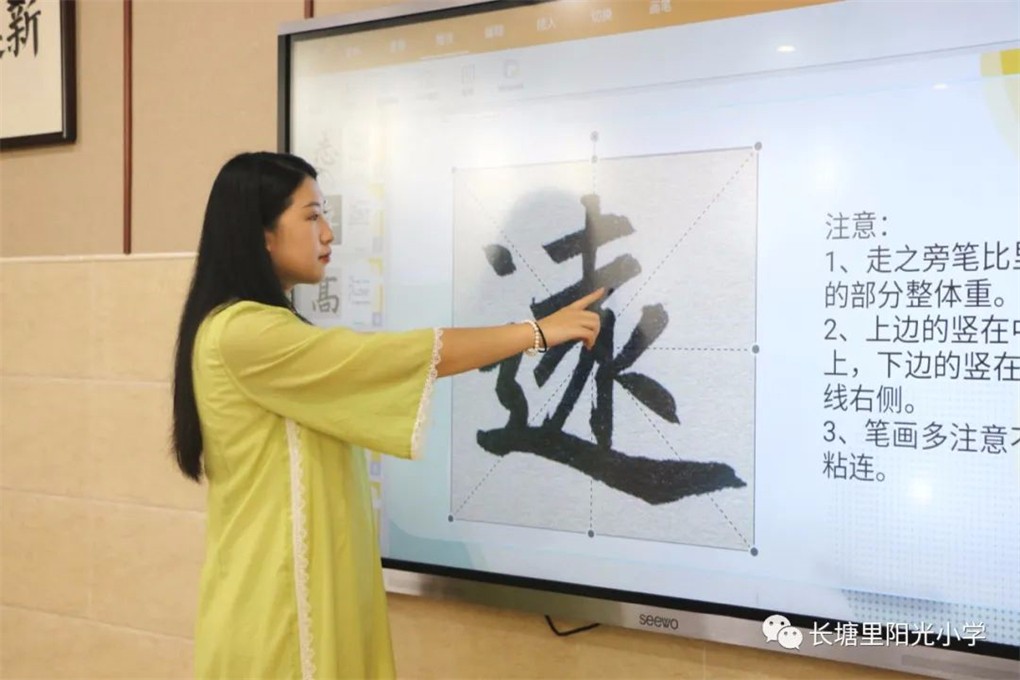 新
高
遠
注意：
1、走之旁笔比里
的部分整体重。
2、上边的竖在中
上，下边的竖在
线右侧。
3、笔画多注意不
粘连。
seewo
长塘里阳光小学